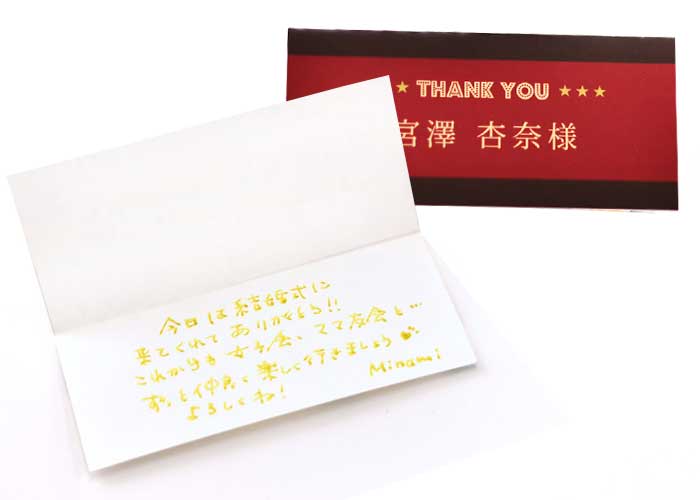 ★ THANK YOU ★★★
宮澤 杏奈様
今日は結婚式に
来てくれてありがとう!!
これからも女子会、ママ友会と…
ずっと仲良く楽しく行きましょう
よろしくね!
Minami